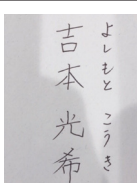 よしもと こうき
吉本 光希